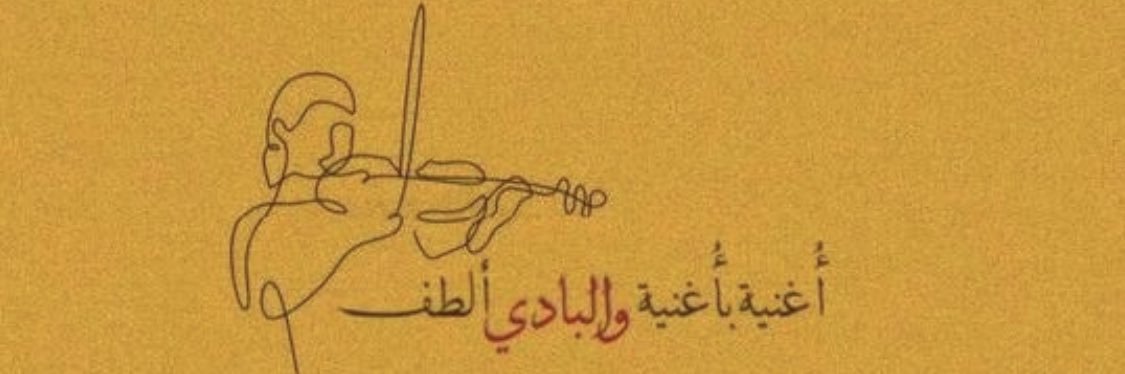 أُغنية بأُغنية والبادي ألطف